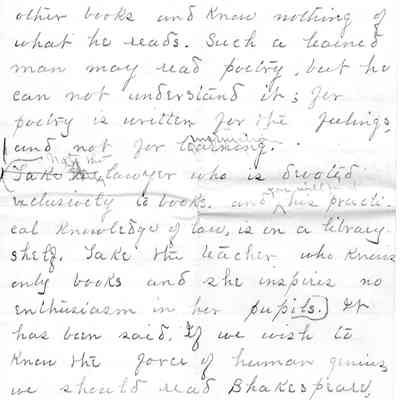 other books and know nothing of
what he reads. Such a learned
man may read poetry, but he
can not understand it; for
poetry is written for the feelings,
and not for learning.
Take the lawyer who is devoted
exclusively to books, and his practi-
cal knowledge of law, is on a library
shelf. Take the teacher who knows
only books and she inspires no
enthusiasm in her pupils.) It
has been said, If we wish to
know the force of human genius,
we should read Shakespeare,